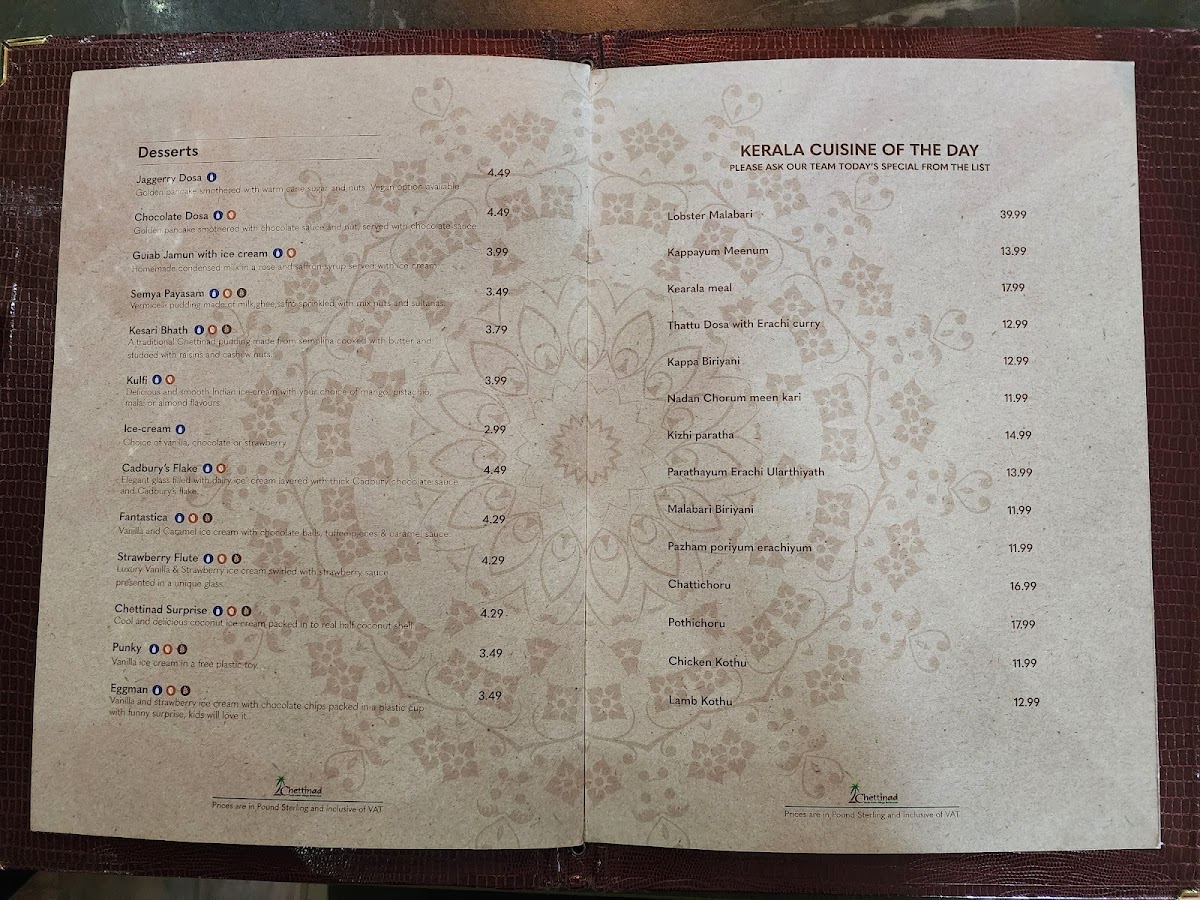 Desserts
Jaggerry Dosa
4.49
Golden pancake smothered with warm cane sugar and nuts. Vegan option avaliable
Chocolate Dosa
4.49
Golden pancake smothered with chocolate sauce and nut, served with chocolate sauce
Gulab Jamun with ice cream
3.99
Homemade condensed milk in a rose and saffron syrup served with ice cream
Semya Payasam
3.49
Vermicelli pudding made of milk,ghee,safron sprinkled with mix nuts and sultanas.
Kesari Bhath
3.79
A traditional Chettinad pudding made from semolina cooked with butter and
studded with raisins and cashew nuts.
Kulfi
3.99
Delicious and smooth Indian ice-cream with your choice of mango, pistachio,
malai or almond flavours.
Ice-cream
2.99
Choice of vanilla, chocolate or strawberry
Cadbury's Flake
4.49
Elegant glass filled with dairy ice cream layered with thick Cadbury chocolate sauce
and Cadbury's flake.
Fantastica
4.29
Vanilla and Caramel ice cream with chocolate balls, pieces & caramel sauce
Strawberry Flute
4.29
Luxury Vanilla & Strawberry ice cream swirled with strawberry sauce
presented in a unique glass.
Chettinad Surprise
4.29
Cool and delicious coconut ice cream packed in to real half coconut shell
Punky
3.49
Vanilla ice cream in a free plastic toy
Eggman
3.49
Vanilla and strawberry ice cream with chocolate chips packed in a plastic cup
with funny surprise, kids will love it.
Chettinad
Prices are in Pound Sterling and Inclusive of VAT
KERALA CUISINE OF THE DAY
PLEASE ASK OUR TEAM TODAY'S SPECIAL FROM THE LIST
Lobster Malabari 39.99
Kappayum Meenum 13.99
Kearala meal 17.99
Thattu Dosa with Erachi curry 12.99
Kappa Biriyani 12.99
Nadan Chorum meen kari 11.99
Kizhi paratha 14.99
Parathayum Erachi Ularthiyath 13.99
Malabari Biriyani 11.99
Pazham poriyum erachiyum 11.99
Chattichoru 16.99
Pothichoru 17.99
Chicken Kothu 11.99
Lamb Kothu 12.99
Chettinad
Prices are in Pound Sterling and Inclusive of VAT